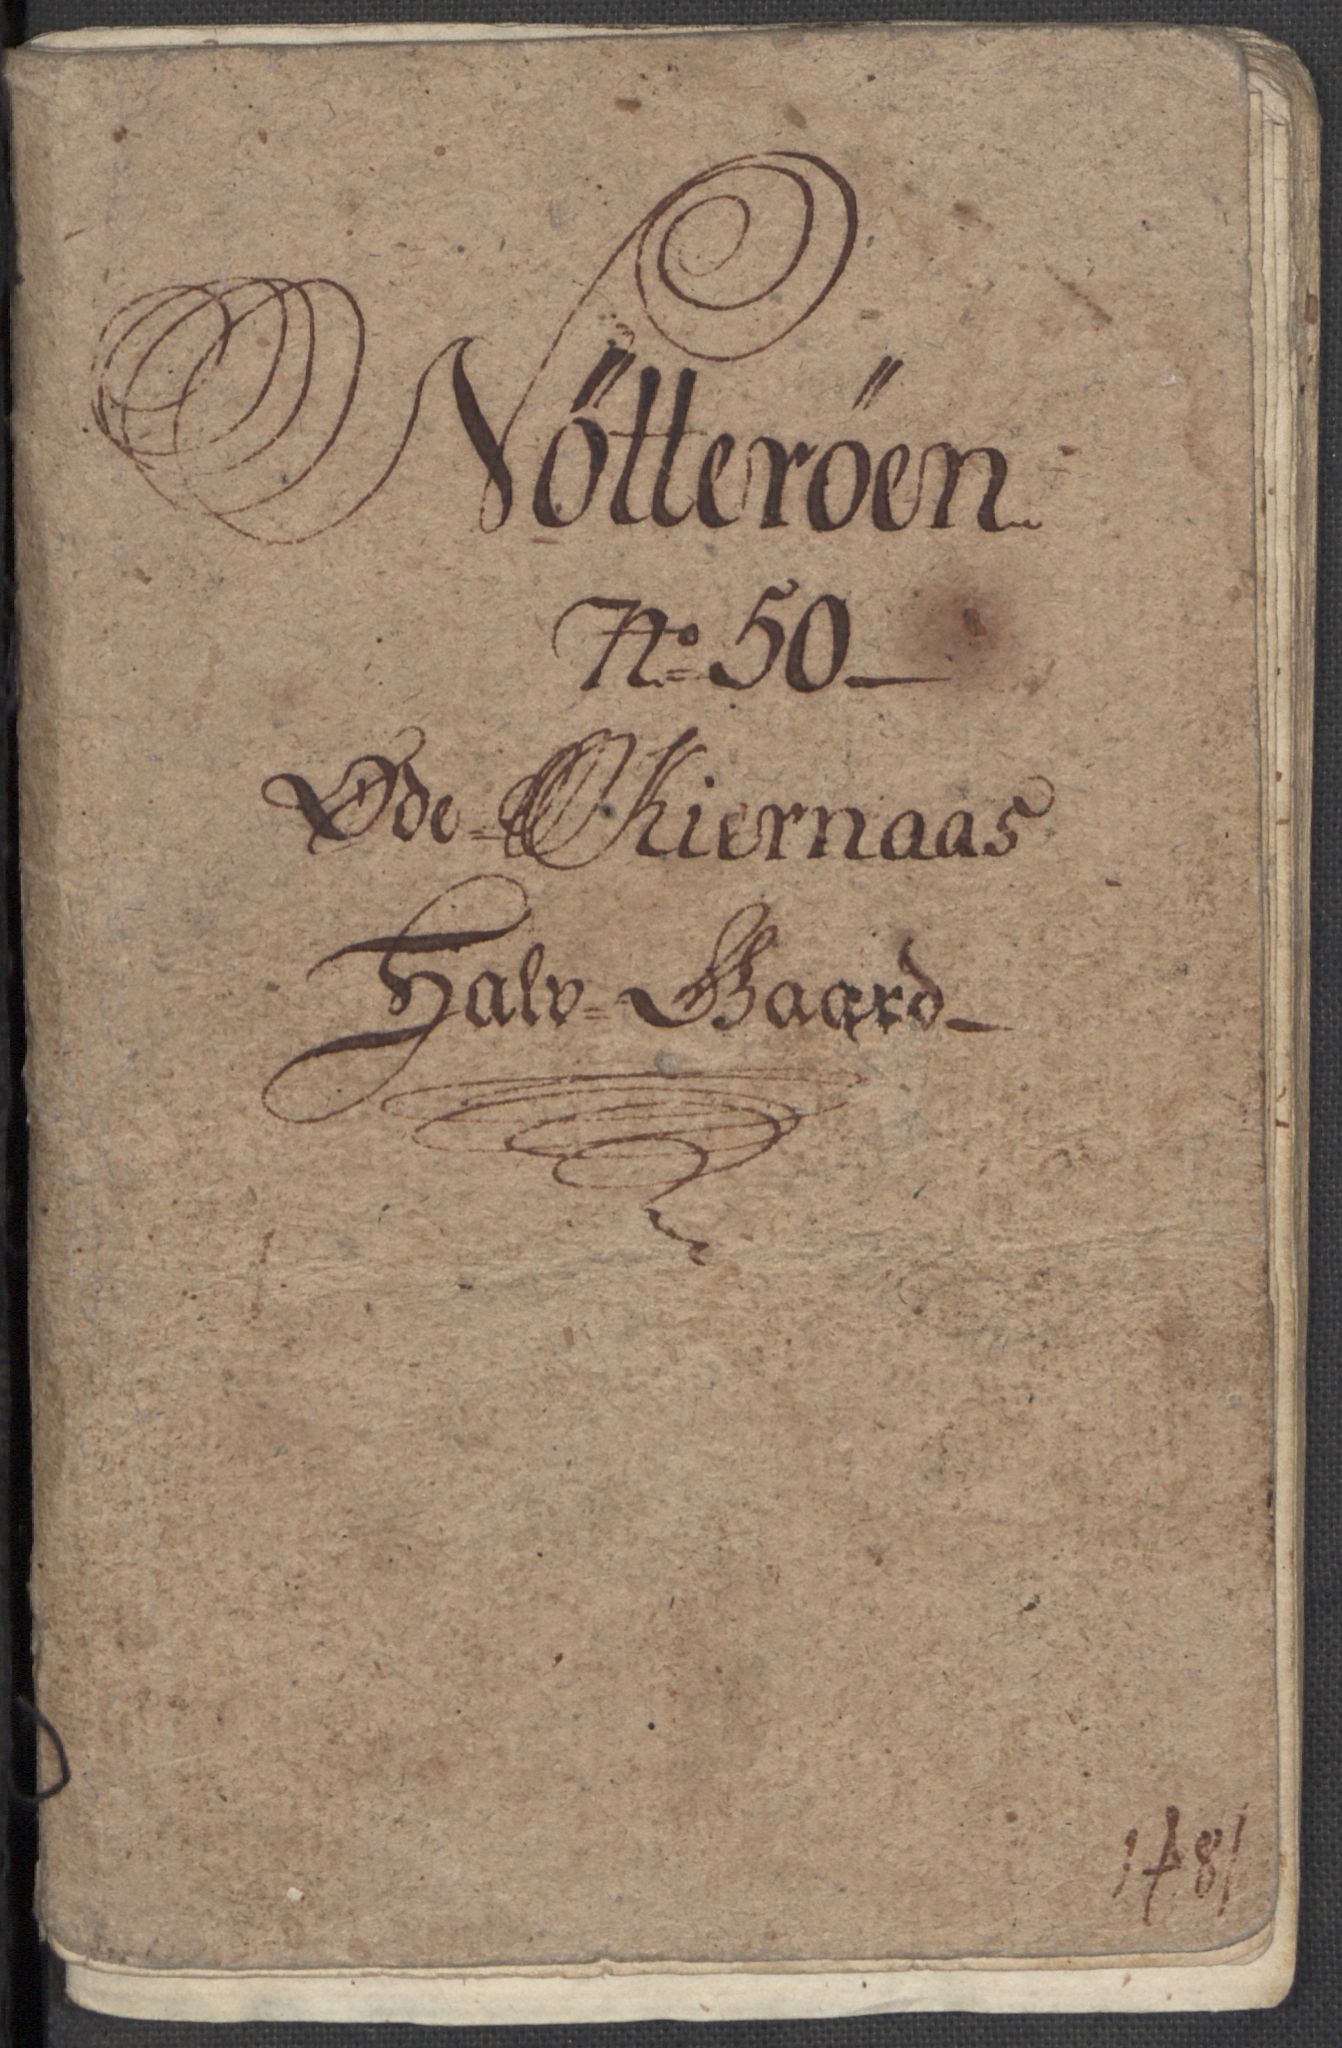 Nőtterően
No. 50
Øde-Kiernaas
Halv-Gaard
1781